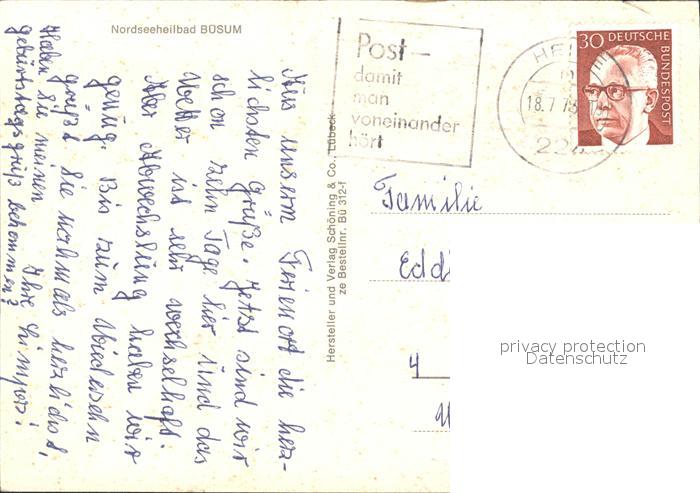 Nordseeheilbad BÜSUM
Aus unserm Ferienort die herz-
lichsten Grüße. Jetzt sind wir
schon zehn Tage hier und das
Wetter ist sehr wechselhaft.
Aber Abwechslung haben wir
genug. Bis zum Wiedersehn
grüßt Sie nochmals herzlichst,
Ihre
Haben Sie meinen
Geburtstagsgruß bekommen?
Hersteller und Verlag Schöning & Co., Lübeck
ze Bestellnr. Bü 312-f
Post-
damit
man
voneinander
hört
HEI
18.7.73
224
30 DEUTSCHE
BUNDESPOST
Familie
Eddi
4
privacy protection
Datenschutz